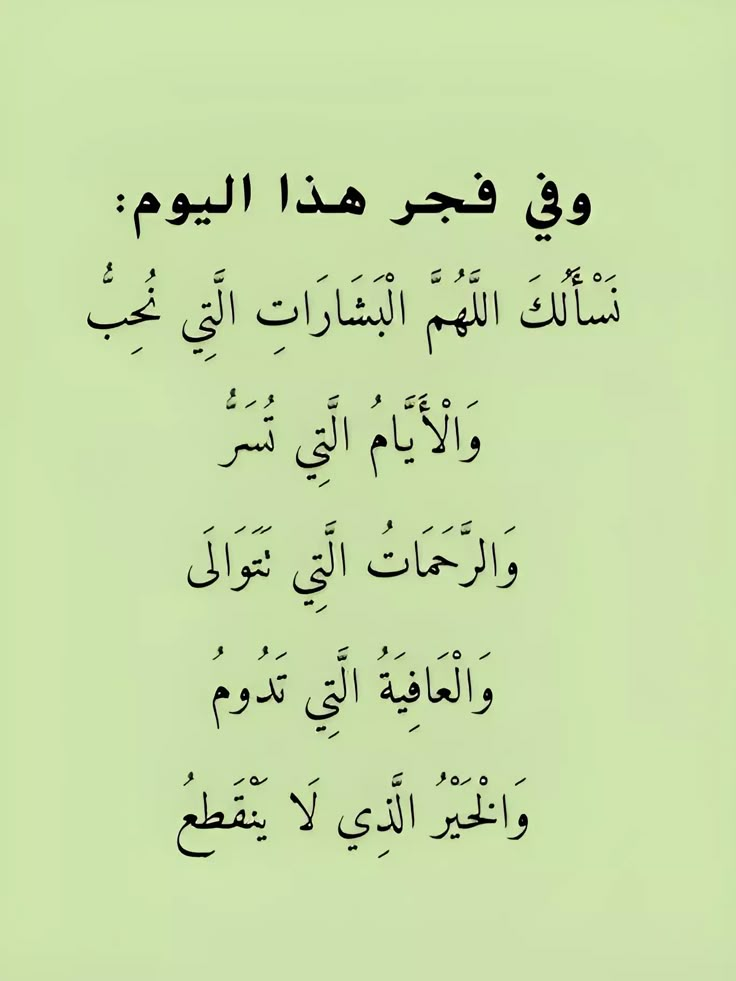 وفي فجر هذا اليوم:
نَسْأَلُكَ اللَّهُمَّ الْبَشَارَاتِ الَّتِي نُحِبُّ
وَالْأَيَّامُ الَّتِي تُسَرُّ
وَالرَّحَمَاتُ الَّتِي تَتَوَالَى
وَالْعَافِيَةُ الَّتِي تَدُومُ
وَالْخَيْرُ الَّذِي لَا يَنْقَطِعُ